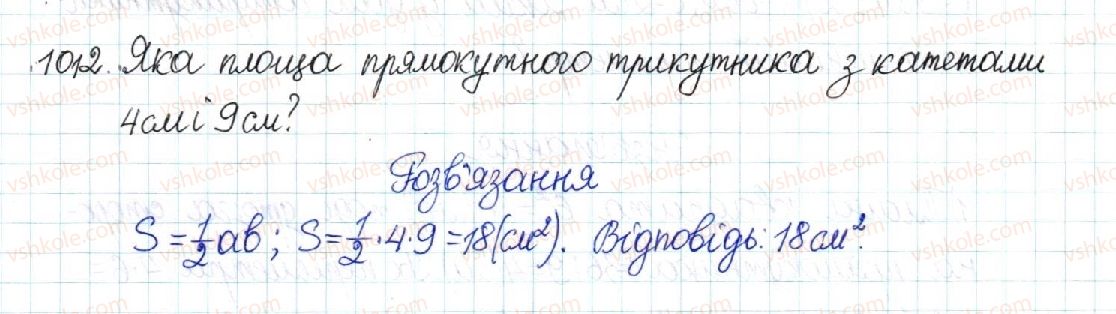 1012. Яка площа прямокутного трикутника з катетами
4см і 9 см?
Розв'язання
S = 1/2 ab; S = 1/2 · 4 · 9 = 18 (см²). Відповідь: 18 см².